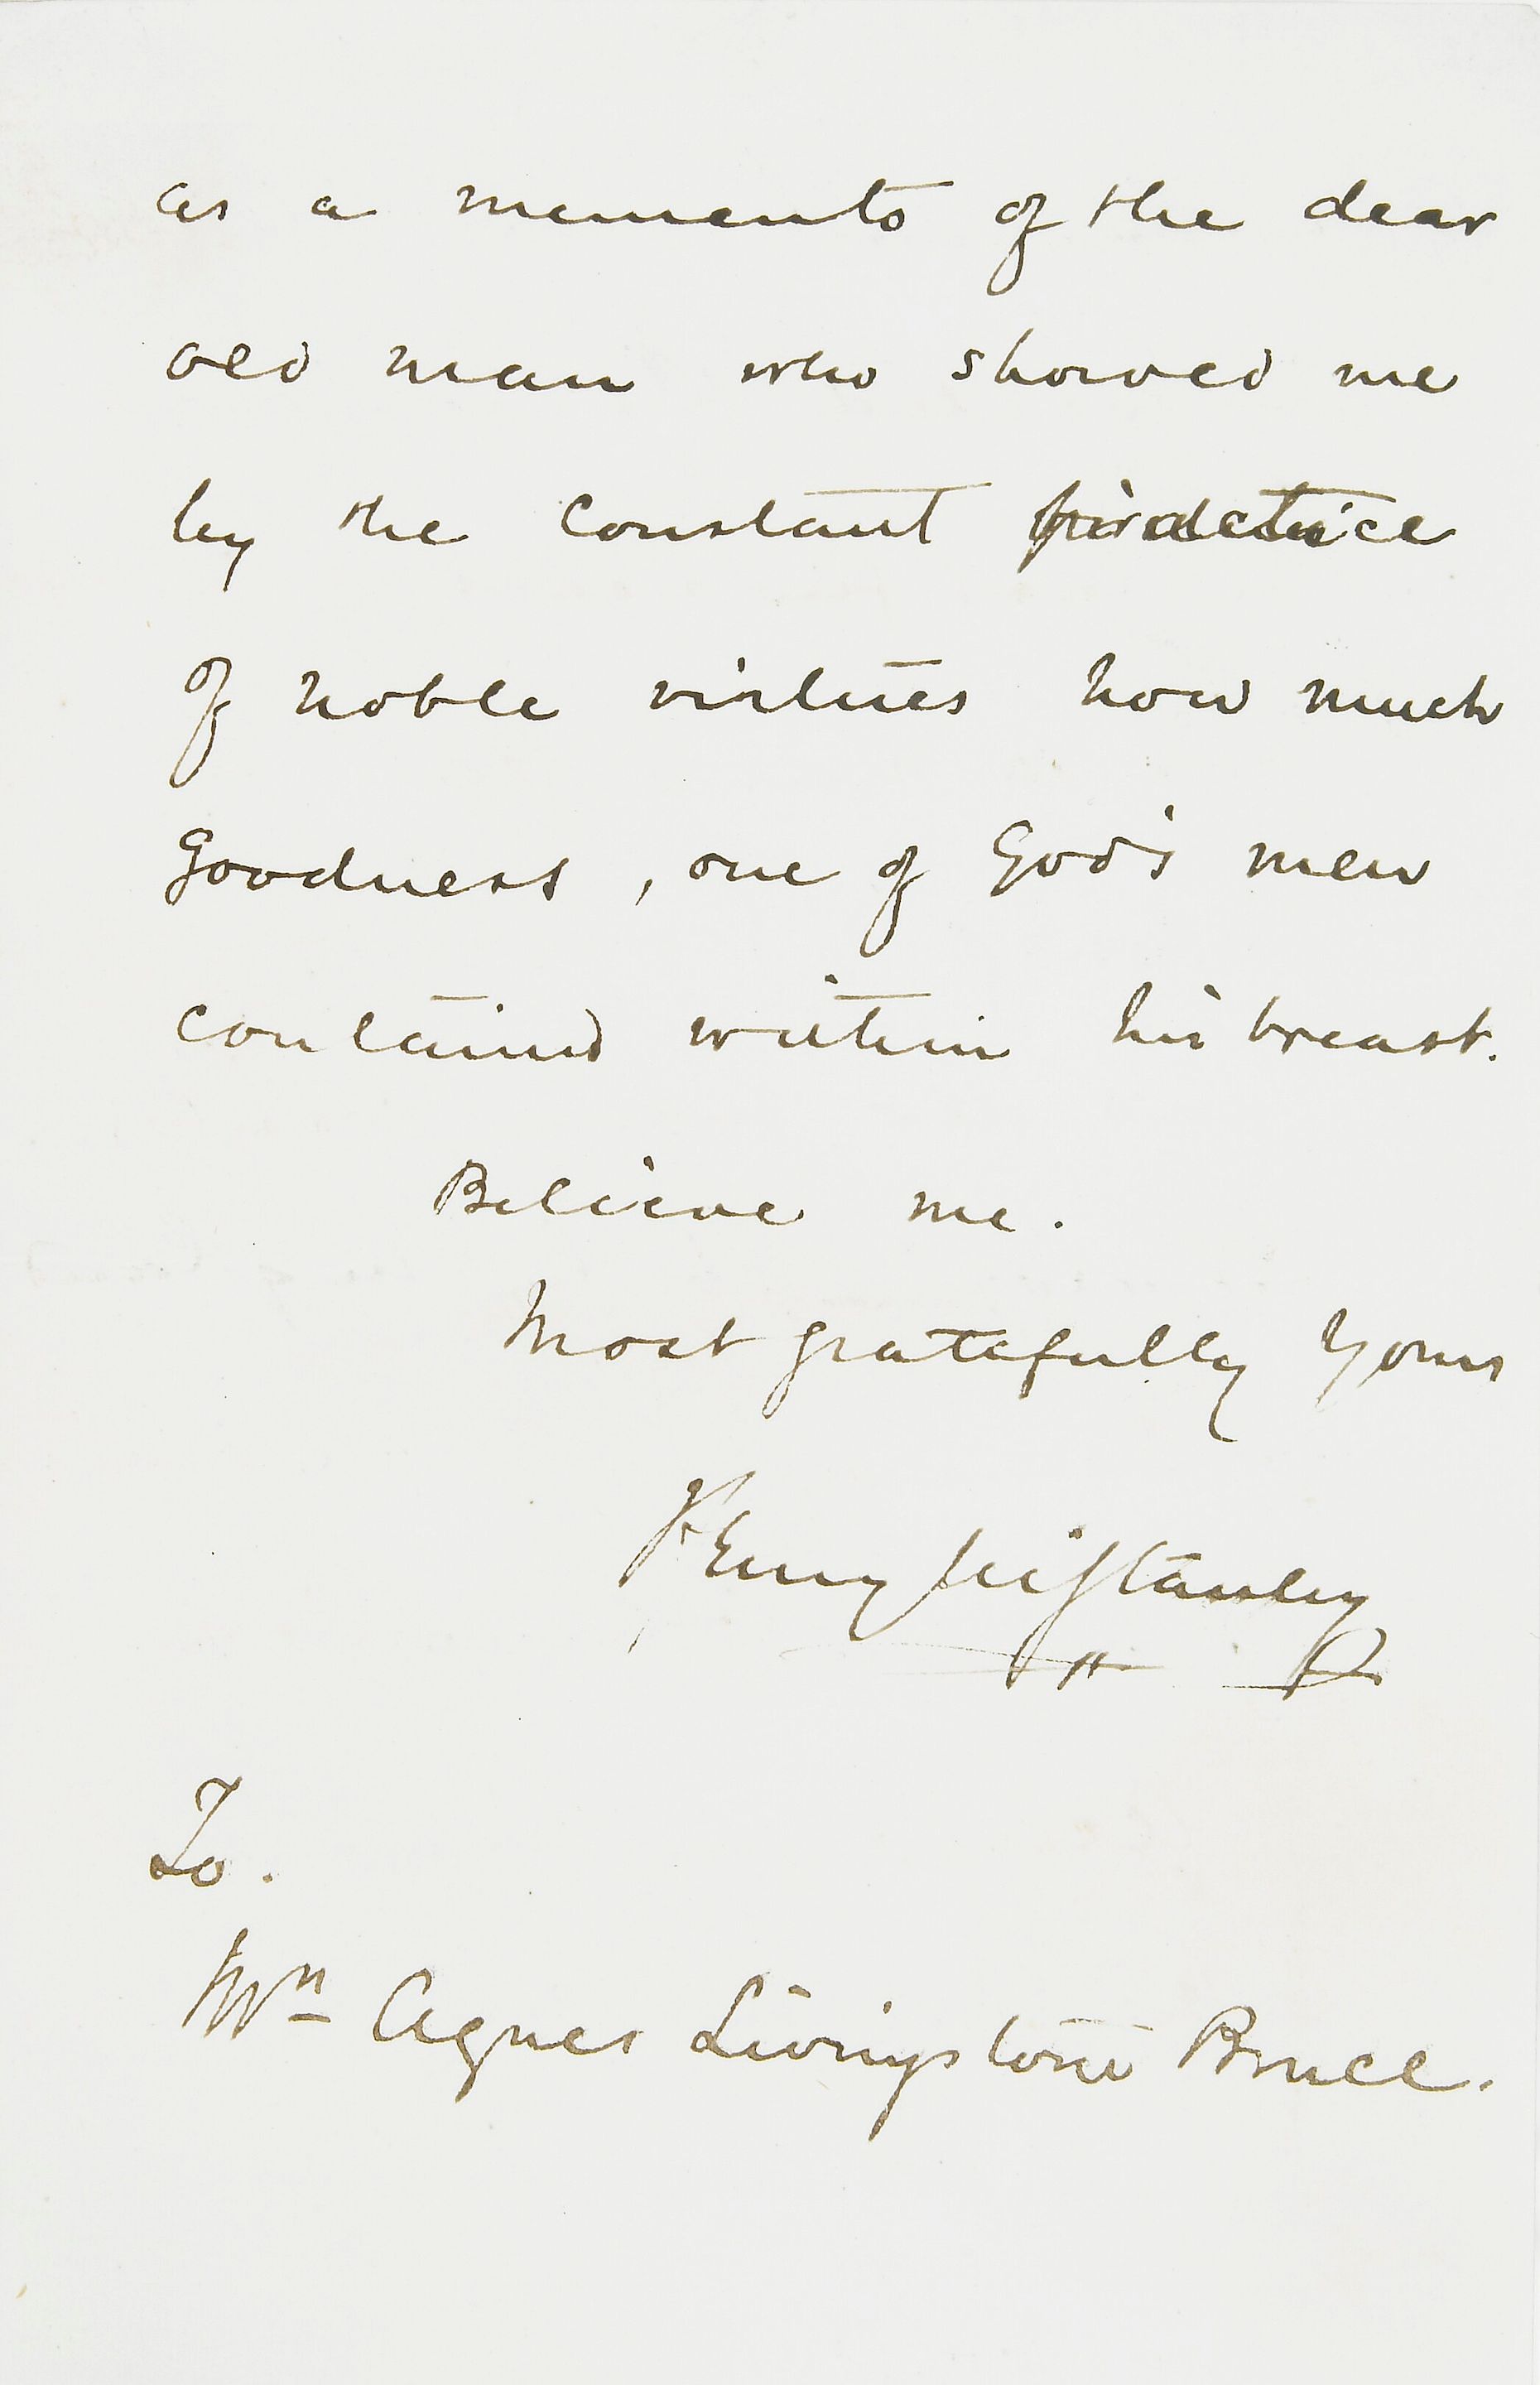 as a memento of the dear
old man who showed me
by the constant practice
of noble virtues how much
goodness, one of God's men
contained within his breast.
Believe me.
Most gratefully Yours
Henry M Stanley
To.
Mrs Agnes Livingstone Bruce.